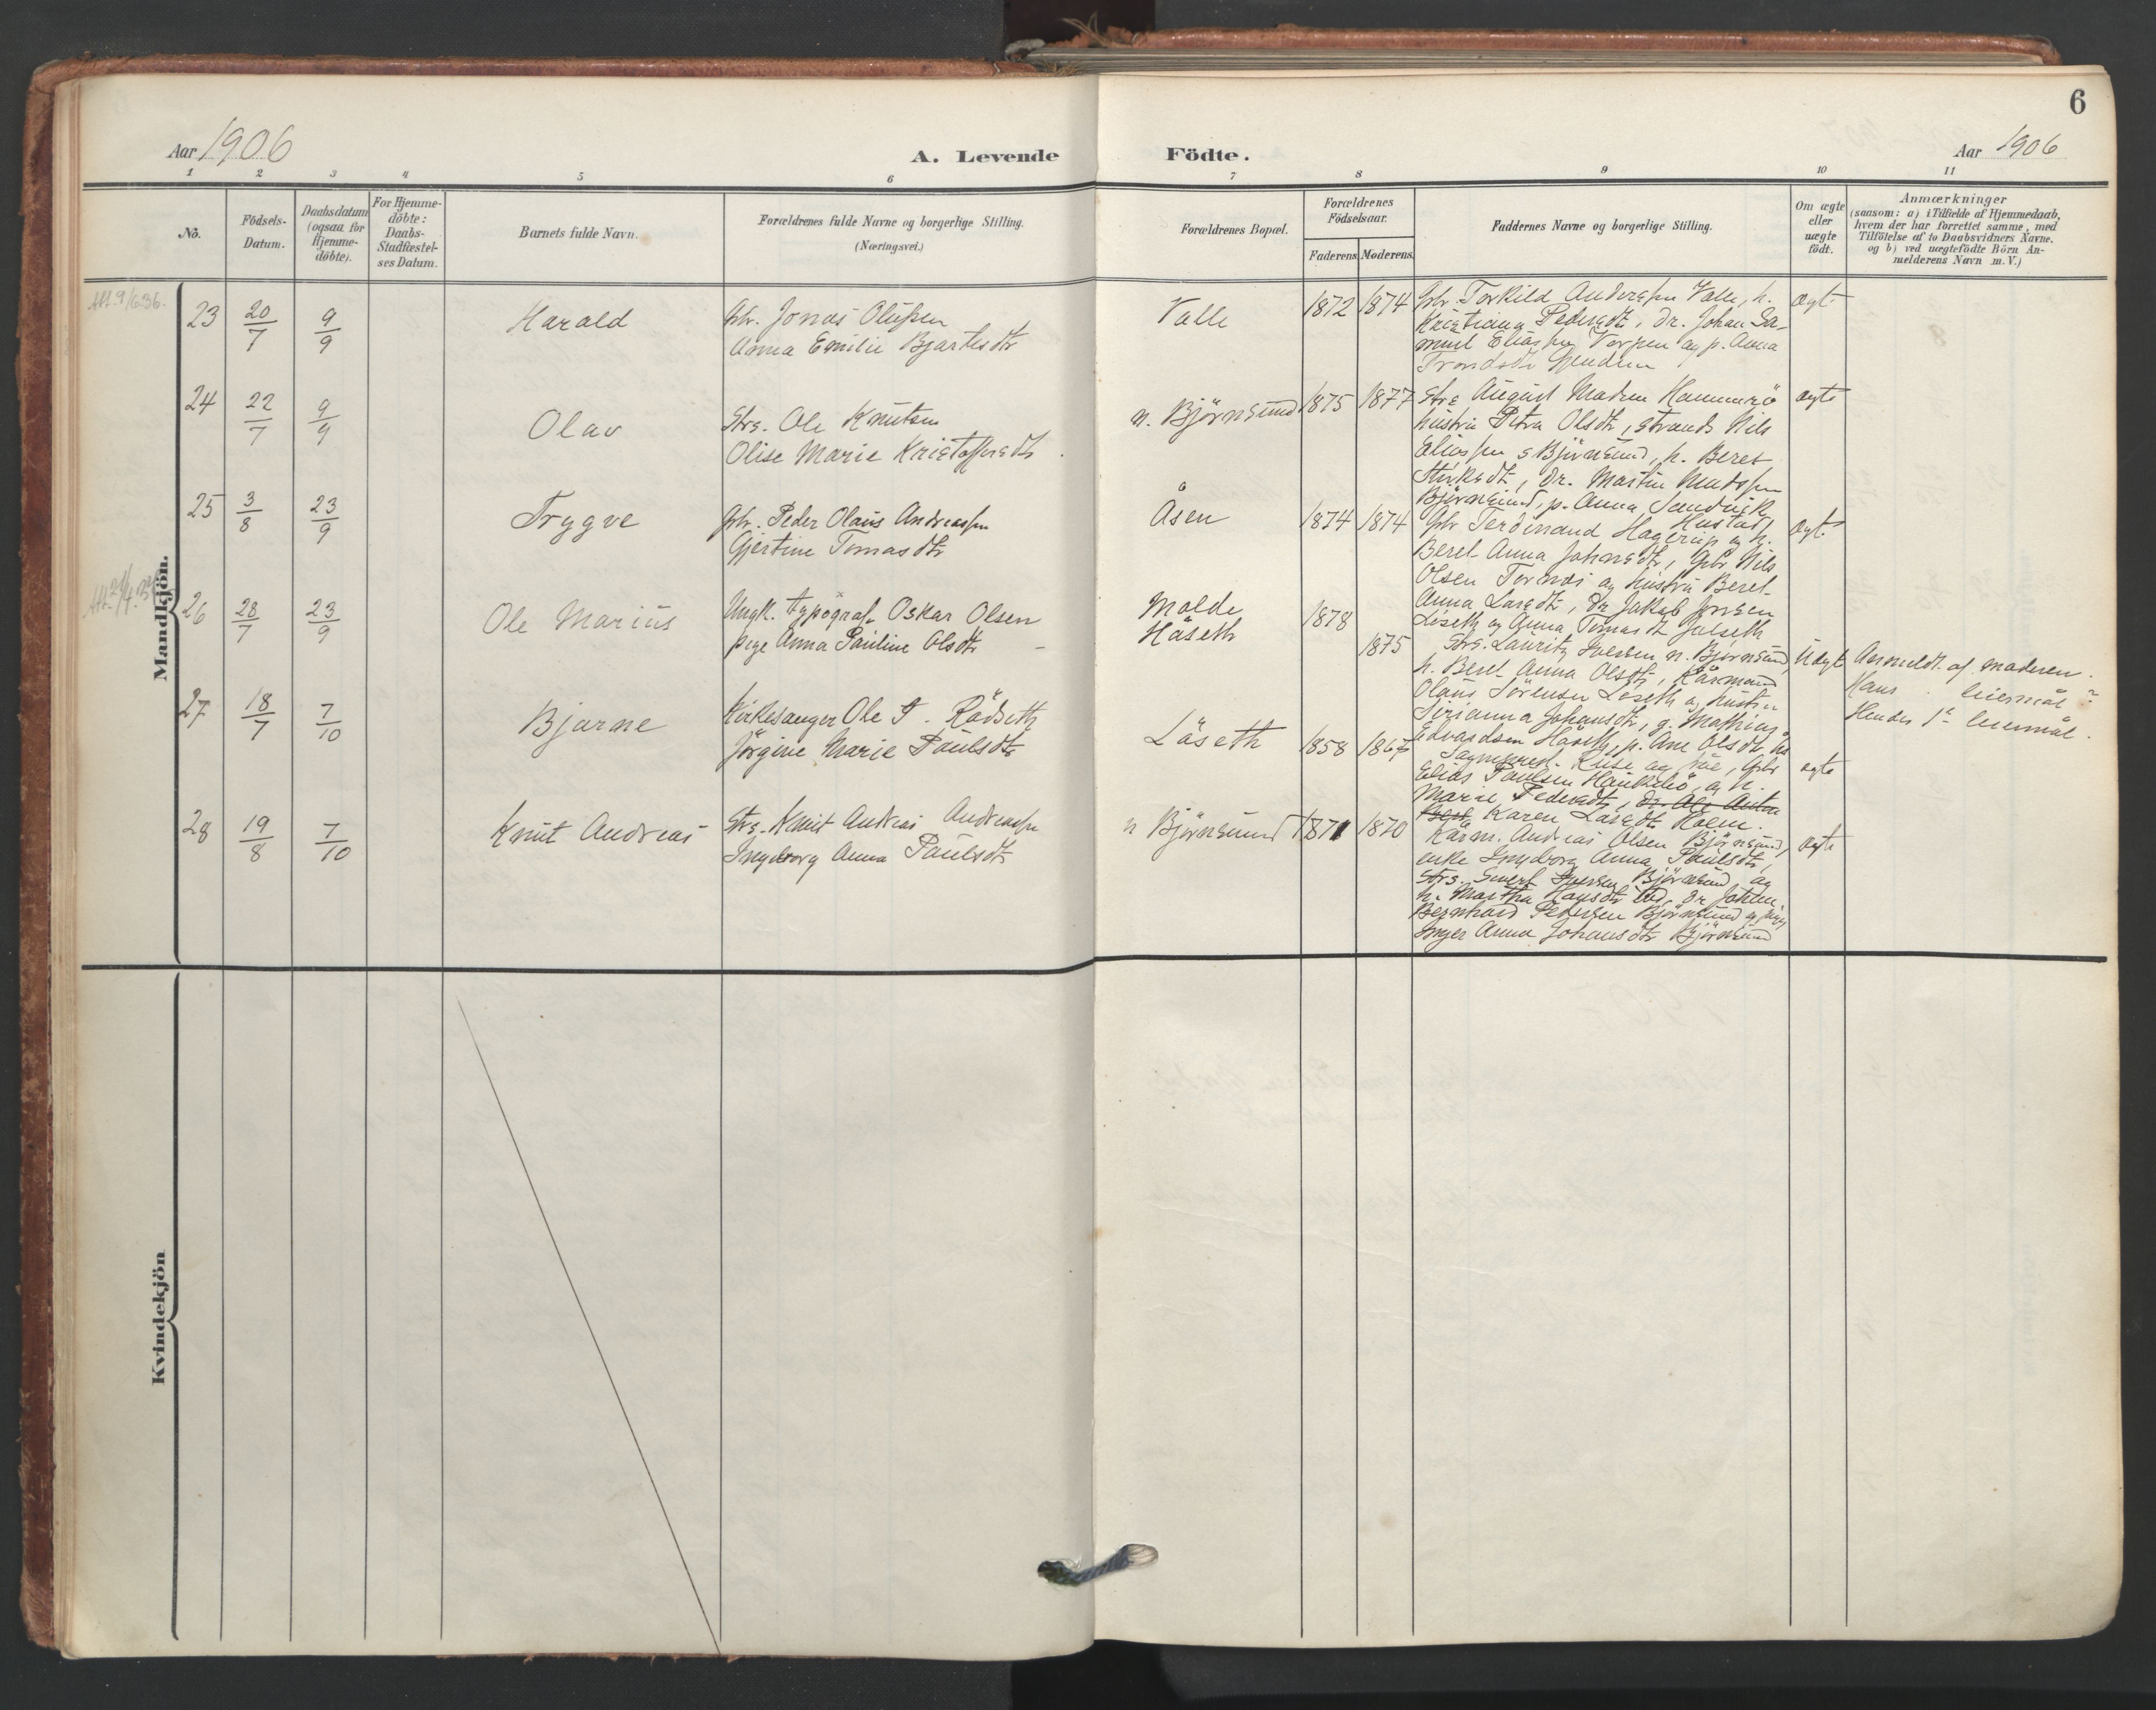 6
Aar 1906
A. Levende Födte.
Aar 1906
1 2 3 4 5 6 7 8 9 10 11
No.
Födsels-
Datum.
Daabsdatum
(ogsaa for
Hjemme-
döbte).
For Hjemme-
döbte:
Daabs-
Stadfæstel-
ses Datum.
Barnets fulde Navn.
Forældrenes fulde Navne og borgerlige Stilling.
(Næringsvei.)
Forældrenes Bopæl.
Forældrenes
Födselsaar.
Faderens. Moderens.
Faddernes Navne og borgerlige Stilling.
Om ægte
eller
uægte
födt.
Anmærkninger
(saasom: a) i Tilfælde af Hjemmedaab,
hvem der har forrettet samme, med
Tilföielse af to Daabsvidners Navne.
og b) ved uægtefödte Börn An-
melderens Navn m. V.)
Mandkjön.
Att. 9/6.36.
23 20/7 9/9 Harald
Gbr. Jonas Olufsen
Anna Emilie Bjartesdtr
Valle 1872 1874
Gbr. Torkild Anderssen Valle, h.
Kristiana Pedersdtr, dr. Johan Sa-
muel Eliassen Vorpen og p. Anna
Trondsdtr
ægte
24 22/7 9/9 Olav
Strs. Ole Knutsen
Olise Marie Kristoffersdtr
n. Björnsund 1875 1877
Strs August Madsen Hammerö
hustru Petra Olsdtr, strands. Nils
Eliassen s Björnsund, h. Beret
dr. Martin Madssen
Björnsund, p. Anna Sandvik
Hustad
ægte
25 3/8 23/9 Trygve
Gbr. Peder Olaus Andreassen
Gjertine Tomasdtr
Åsen 1874 1874
Gbr Ferdinand Hagerup og h.
Beret Anna Johnsdtr, Gbr Nils
Olsen Tornæs og hustru Beret
Anna Larsdtr, dr Jakob Jensen
Læseth og Anna Tomasdtr Julseth
ægte
26 28/7 23/9 Ole Marius
Ungk. typograf Oskar Olsen
pige Anna Pauline Olsdtr
Molde
Håseth
1878
1875
Strs. Lauritz Iversen n. Björnsund,
h. Beret Anna Olsdtr, Kårmand
Olaus Sörensen Læseth og hustru
Sirianna Johansdtr, g. Mathias
Edvardsen Håseth, p. Ane Olsdtr
Uægte
Anmeldt af moderen.
Hans leiermål ?
Hendes 1e leiermål.
27 18/7 7/10 Bjarne
Kirkesanger Ole T. Rödseth
Jörgine Marie Paulsdtr
Läseth 1858 1867
Sogneprest Kuse og frue, Gbr
Elias Paulsen Haukebö og h.
Marie Pedersdtr, dr. Ole Anton
Berg Karen Larsdtr Holen.
ægte
28 19/8 7/10 Knut Andreas
Strs. Knut Andreas Andreassen
Ingeborg Anna Paulsdtr
n Björnsund 1871 1870
Kårm. Andreas Olsen Björnsund,
enke Ingeborg Anna Paulsdtr,
Strs. Sivert Iversen Björnsund og
h. Martha Hansdtr ibd, dr Johan
Bernhard Pedersen Björnsund og pige
Inger Anna Johansdtr Björnsund
ægte
Kvindekjön